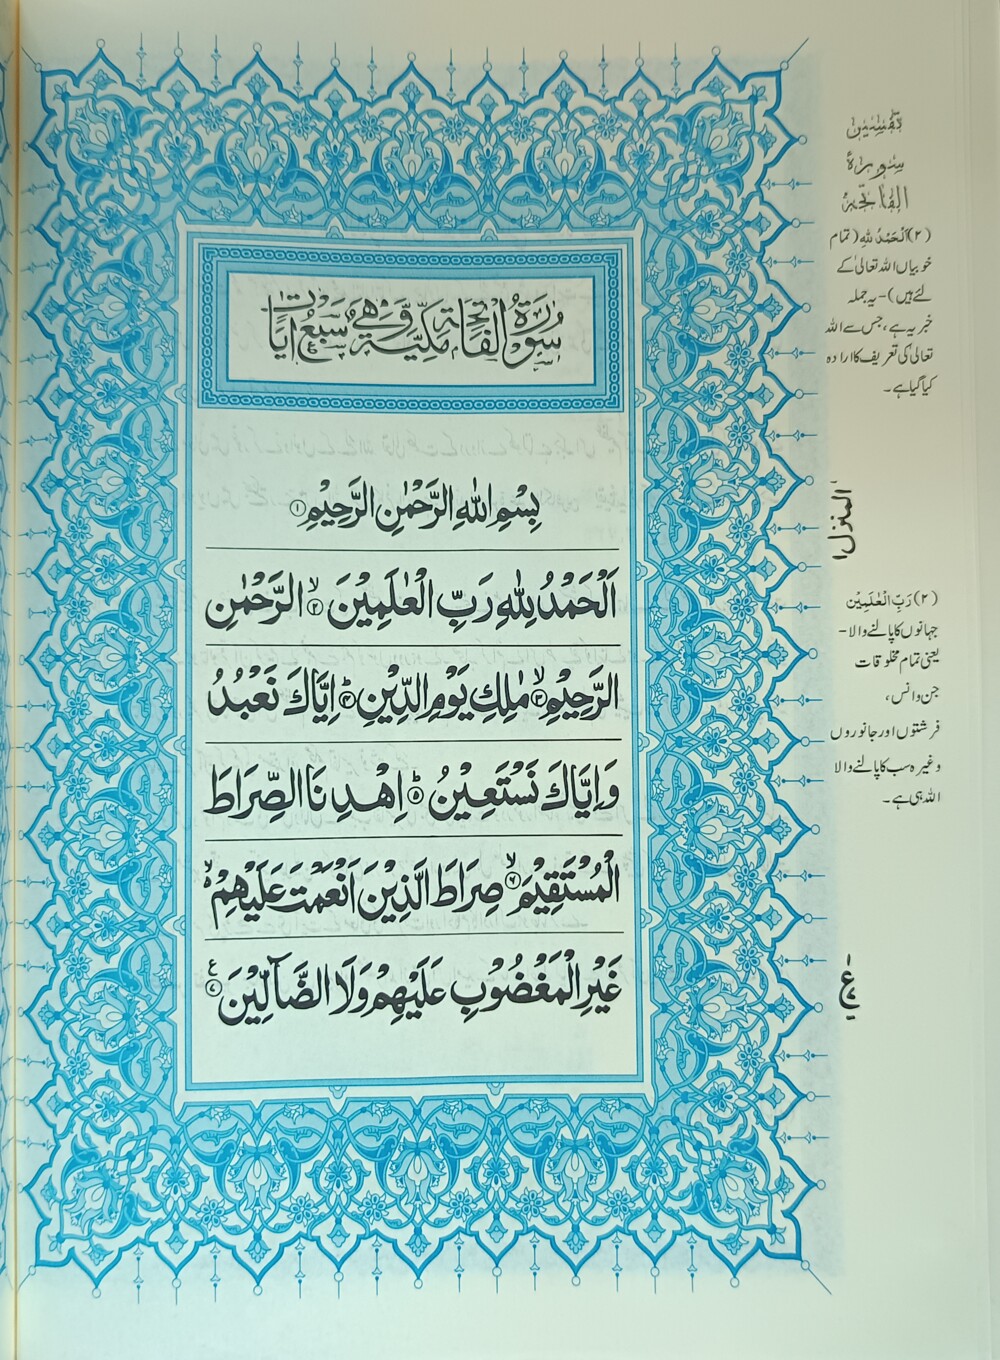 سُوْرَةُ الْفَاتِحَةِ مَكِّيَّةٌ وَّهِيَ سَبْعُ اٰيَاتٍ
بِسْمِ اللّٰهِ الرَّحْمٰنِ الرَّحِيْمِ ۝۱
اَلْحَمْدُ لِلّٰهِ رَبِّ الْعٰلَمِيْنَ ۝۲ۙ الرَّحْمٰنِ
الرَّحِيْمِ ۝۳ۙ مٰلِكِ يَوْمِ الدِّيْنِ ۝۴ؕ اِيَّاكَ نَعْبُدُ
وَاِيَّاكَ نَسْتَعِيْنُ ۝۵ؕ اِهْدِنَا الصِّرَاطَ
الْمُسْتَقِيْمَ ۝۶ۙ صِرَاطَ الَّذِيْنَ اَنْعَمْتَ عَلَيْهِمْ ۙ
غَيْرِ الْمَغْضُوْبِ عَلَيْهِمْ وَلَا الضَّآلِّيْنَ ۝۷ع
تفسير
سورة
الفاتحة
(۲) اَلْحَمْدُ لِلّٰهِ (تمام
خوبیاں اللہ تعالیٰ کے
لئے ہیں)-یہ جملہ
خبریہ ہے، جس سے اللہ
تعالیٰ کی تعریف کا ارادہ
کیا گیا ہے۔
المنزل ۱
(۲) رَبِّ الْعٰلَمِيْنَ
جہانوں کا پالنے والا-
یعنی تمام مخلوقات
جن و انس،
فرشتوں اور جانوروں
وغیرہ سب کا پالنے والا
اللہ ہی ہے۔
ع